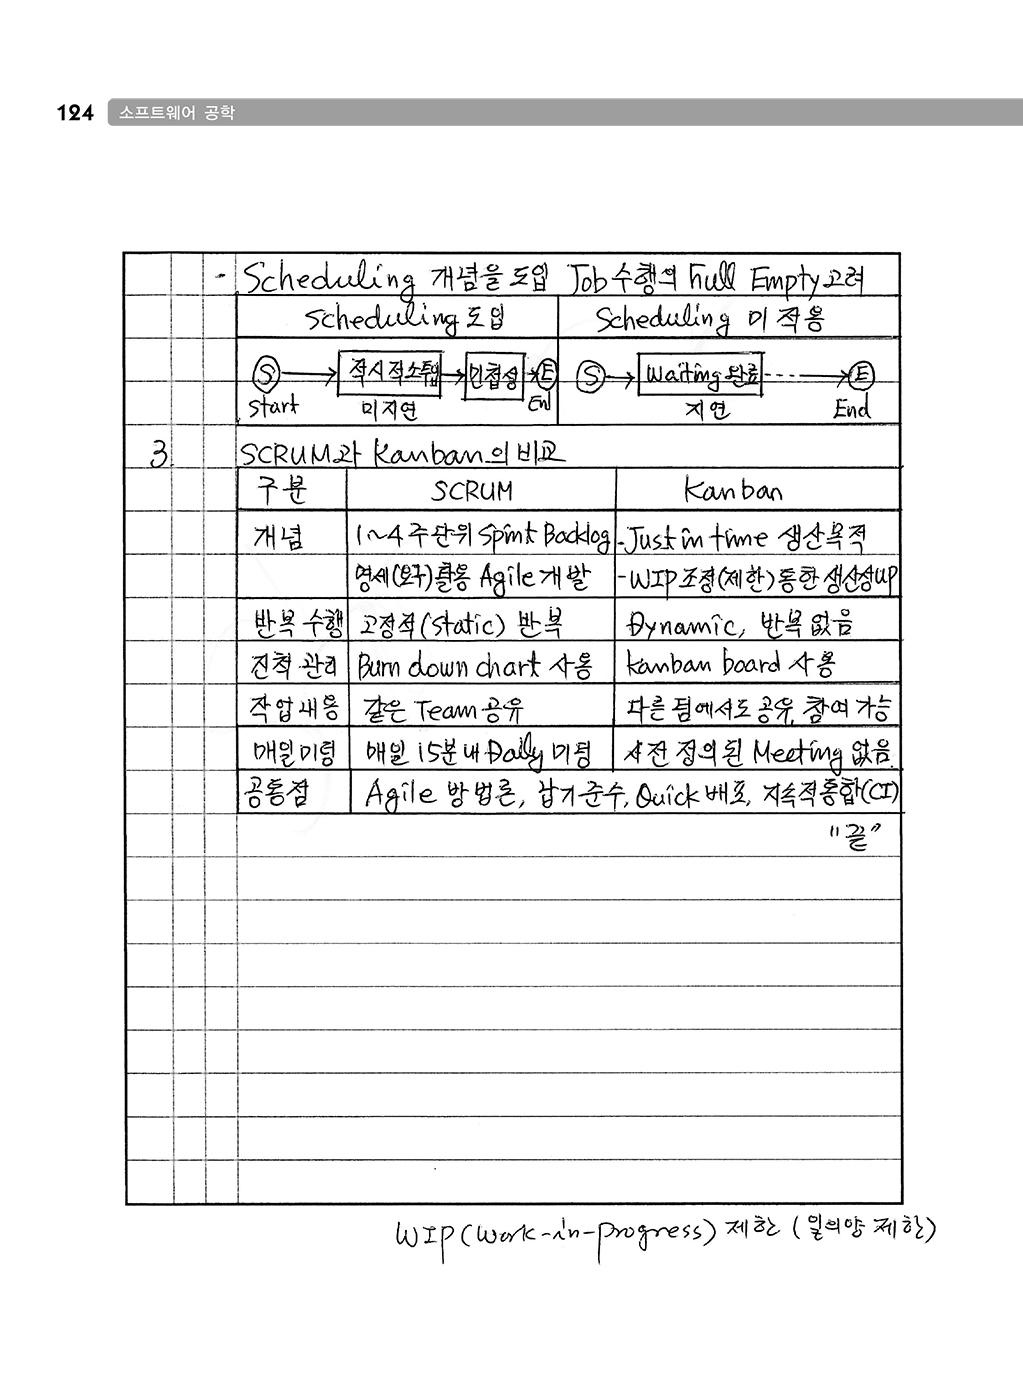 124 소프트웨어 공학
- Scheduling 개념을 도입 Job 수행의 Full Empty 고려
Scheduling 도입 Scheduling 미 적용
S 적시 적소 투입 민첩성 E S Waiting 완료 E
Start 미지연 En 지연 End
3. SCRUM과 Kanban의 비교
구분 SCRUM Kanban
개념 1~4주 단위 Spint Backlog - Just in time 생산 목적
명세(요구) 활용 Agile 개발 - WIP 조정(제한) 통한 생산성 up
반복 수행 고정적 (Static) 반복 Dynamic, 반복 없음
진척 관리 Burn down chart 사용 Kanban board 사용
작업내용 같은 Team 공유 다른 팀에서도 공유, 참여 가능
매일미팅 매일 15분내 Daily 미팅 사전 정의된 Meeting 없음.
공통점 Agile 방법론, 납기준수, Quick 배포, 지속적통합(CI)
"끝"
WIP (Work-in-progress) 제한 (일의양 제한)